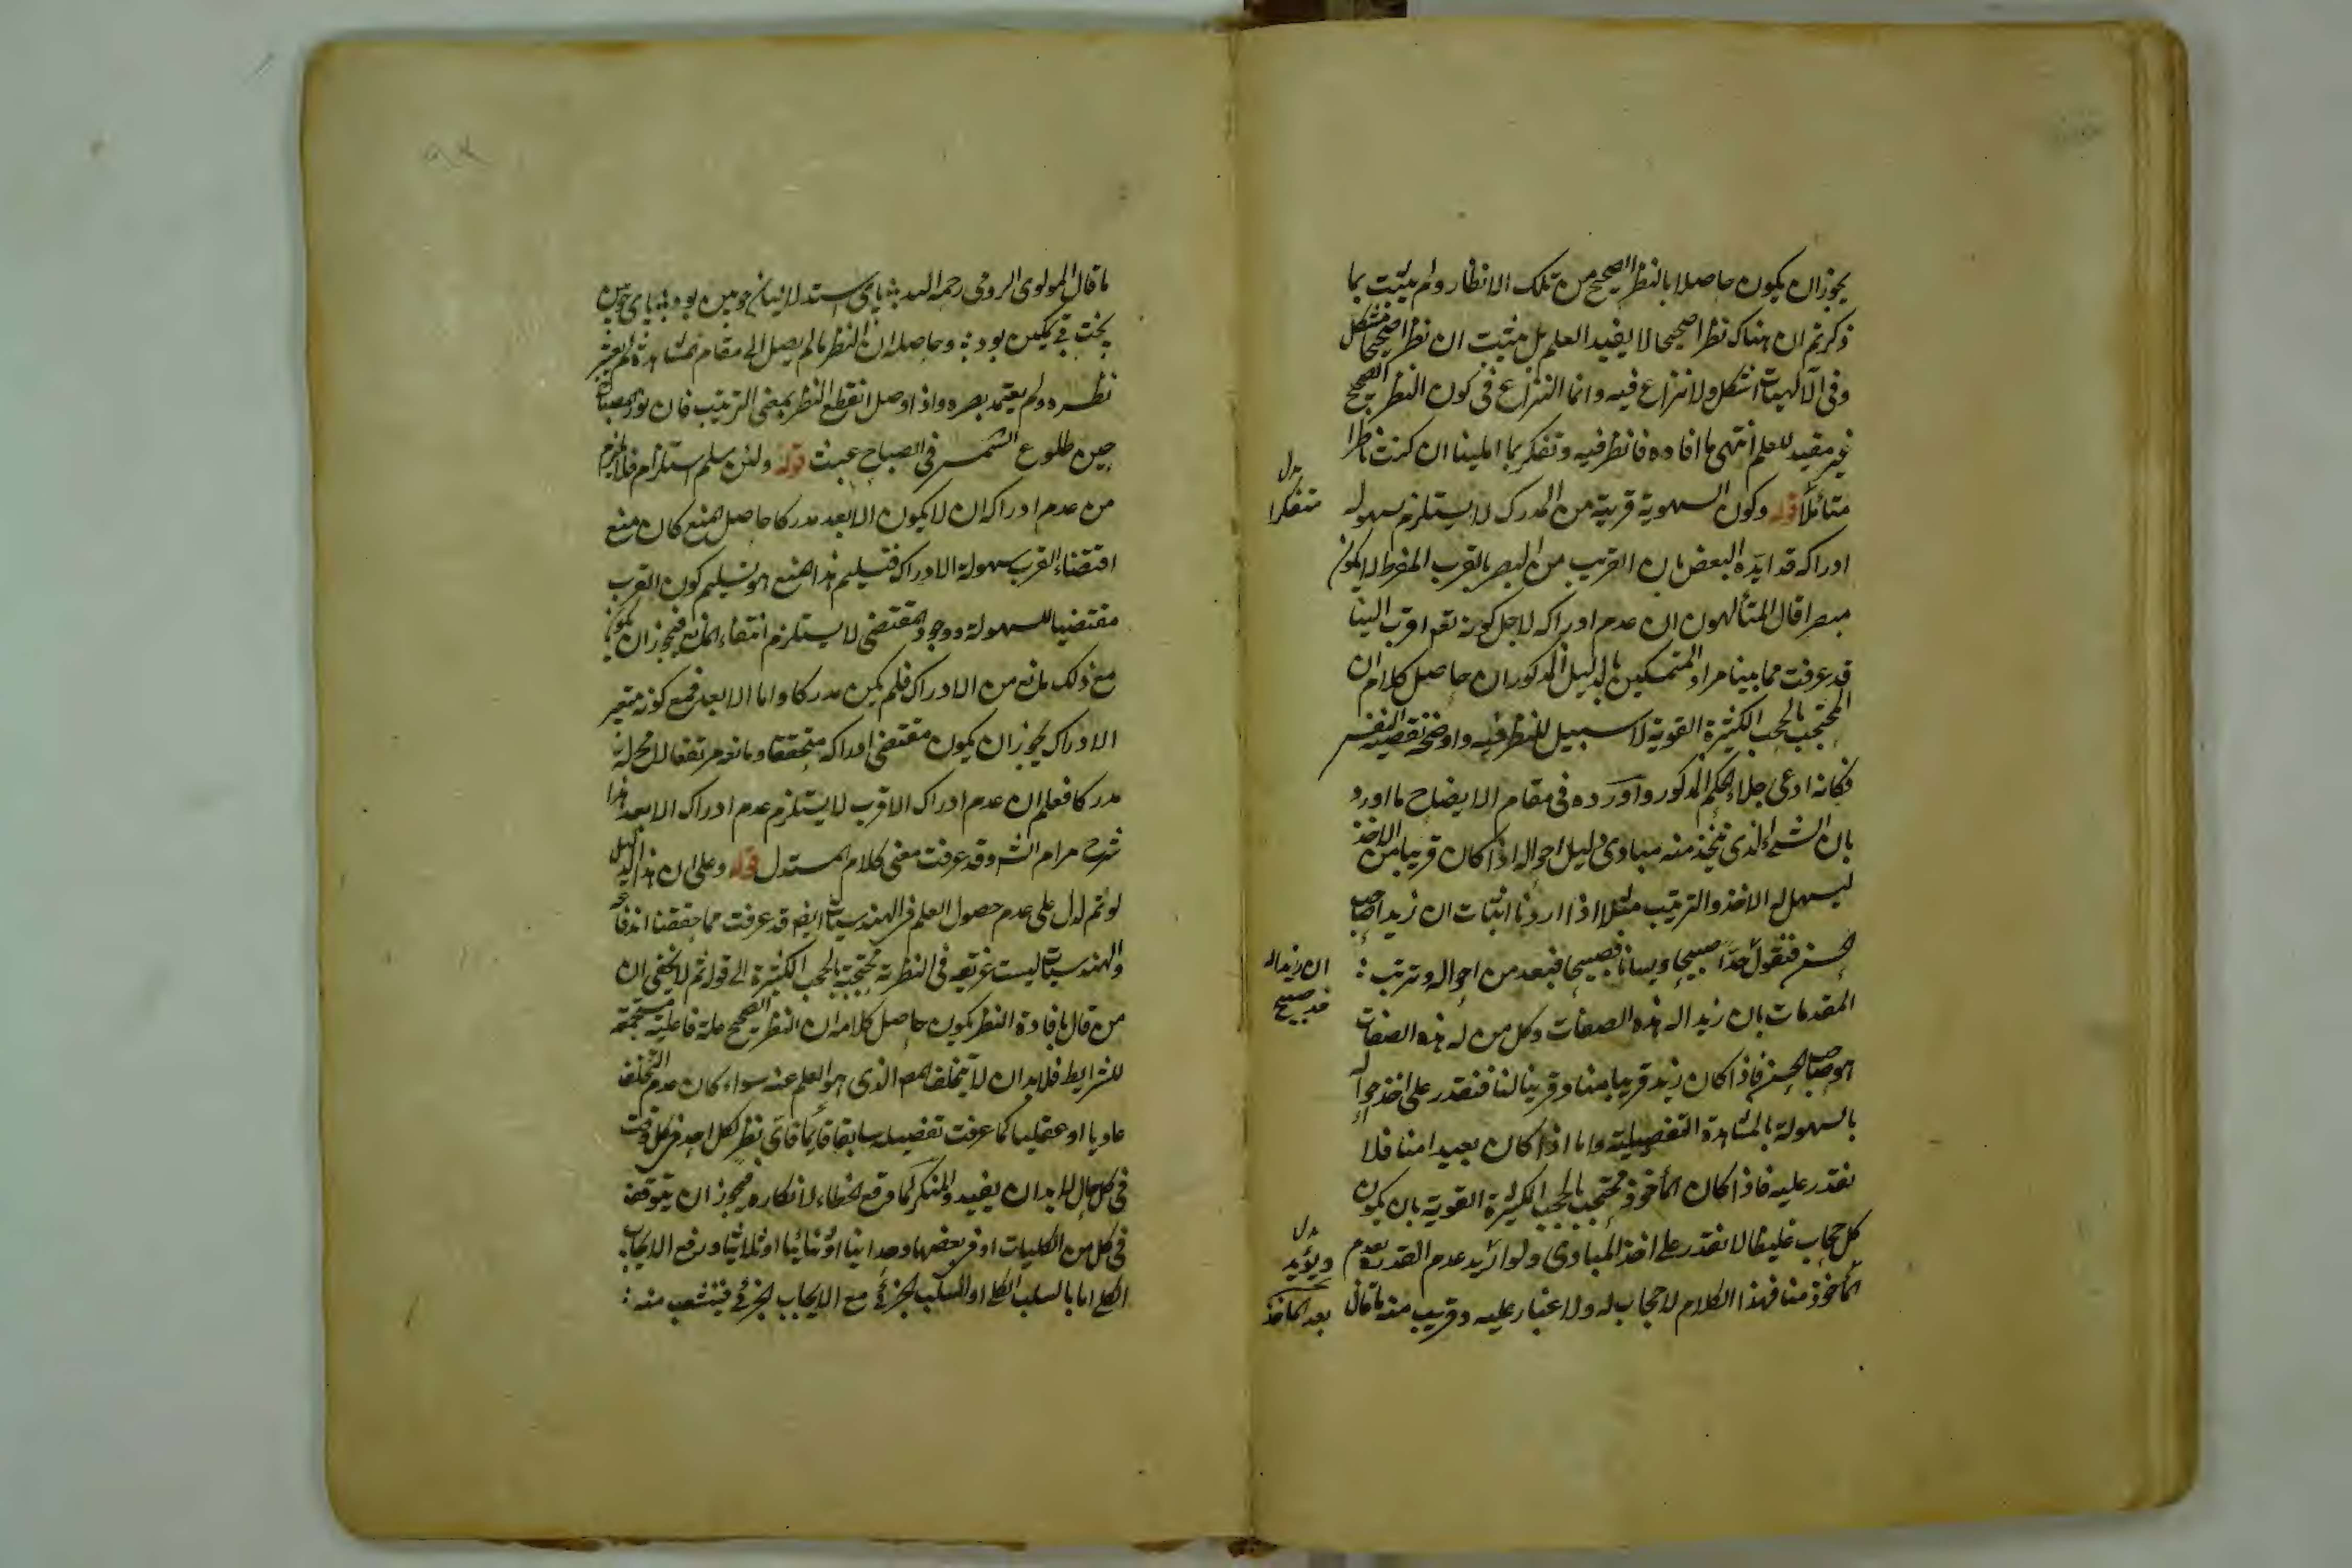 يجوز ان يكون حاصلا بالنظر الصحيح من تلك الانظار ولم يثبت بما
ذكرتم ان هناك نظرا صحيحا لا يفيد العلم بل يثبت ان نظرا صحيحا مشكل
وفى الالهيات اشكل ولا نزاع فيه وانما النزاع فى كون النظر الصحيح
غير مفيد للعلم انتهى ما افاده فانظر فيه وتفكر بما املينا ان كنت ناظرا
متأملا قوله وكون الهوية قريبة من المدرك لا يستلزم سهولة
ادراكه قد ايده البعض بان القريب من البصر بالقرب المفرط لا يكون
مبصرا قال المتألهون ان عدم ادراكه لاجل كونه تعم اقرب الينا
قد عرفت مما بينا مراد المتمسكين بالدليل المذكور ان حاصل كلامه ان
المحتجب بالحجب الكثيرة القوية لا سبيل للنظر فيه واوضحه بقضية النفس
فكانه ادعى جلاء الحكم المذكور واورده فى مقام الايضاح ما اورد
بان الشئ الذى يتخذ منه مبادى دليل احواله اذا كان قريبا من الاخذ
ليسهل له الاخذ والترتيب مثلا اذا اردنا اثبات ان زيدا صاحب
الحسن فنقول خدا صبيحا ولسانا فصيحا فبعد من احواله وترتب
المقدمات بان زيدا له هذه الصفات وكل من له هذه الصفات
هو صاحب الحسن فاذا كان زيد قريبا منا وقرينا لنا فنقدر على اخذ احواله
بالسهولة بالمشاهدة التفصيلية واما اذا كان بعيدا منا فلا
نقدر عليه فاذا كان المأخوذ محتجب بالحجب الكثيرة القوية بان يكون
كل حجاب غليظا لا نقدر على اخذ المبادى ولو اريد عدم القدرة بعدم
المأخوذ منا فهذا الكلام لا حجاب له ولا غبار عليه وقريب منه ما قال
بدل
متفكرا
ان زيدا له
خد صبيح
بدل
ويؤيد
بعد المأخذ
ما قال المولوى الرومى رحمه الله پاى استدلاليان چوبين بود پاى چوبين
سخت بى تمكين بود وحاصله ان النظر ما لم يصل الى مقام المشاهدة لم يعتبر
نظره ولم يعتمد بصره واذا وصل انقطع النظر بمعنى الترتيب فان نور المصباح
حين طلوع الشمس فى الصباح عبث قوله ولئن سلم استلزام فلا يلزم
من عدم ادراكه ان لا يكون الابعد مدركا حاصل المنع كان منع
اقتضاء القرب سهولة الادراك فتسليم هذا المنع هو تسليم كون القرب
مقتضيا للسهولة ووجود المقتضى لا يستلزم انتفاء المانع فيجوز ان يكون
مع ذلك مانع من الادراك فلم يكن مدركا واما الابعد فمع كونه
الادراك يجوز ان يكون مقتضى ادراكه متحققا ومانعه مرتفعا
مدركا فعلم ان عدم ادراك الاقرب لا يستلزم عدم ادراك الابعد هذا
شرح مرام الش وقد عرفت معنى كلام المستدل قوله وعلى ان هذا الدليل
لو تم لدل على عدم حصول العلم فى الهندسيات ايضا قد عرفت مما حققنا اندفاعه
والهندسيات ليست فى النظر محتجبة بالحجب الكثيرة الى قوله ثم لا يخفى ان
من قال بافادة النظر يكون حاصل كلامه ان النظر الصحيح علة فاعلية مستجمعة
للشرايط فلا بد ان لا يتخلف الذى هو العلم عنه سواء كان عدم التخلف
عاديا او عقليا كما عرفت تفصيله سابقا فاى نظر لكل احد فى كل وقت
فى كل حال لا بد ان يفيد والمنكر لما وقع الخطاء لانكاره فيجوز ان يتوقف
فى كل من الكليات او فى بعضها وحدانيا او ثنائيا او ثلاثيا ورفع الايجاب
الكلى اما بالسلب الكلى او السلب الجزئى مع الايجاب الجزئى فينشعب منه